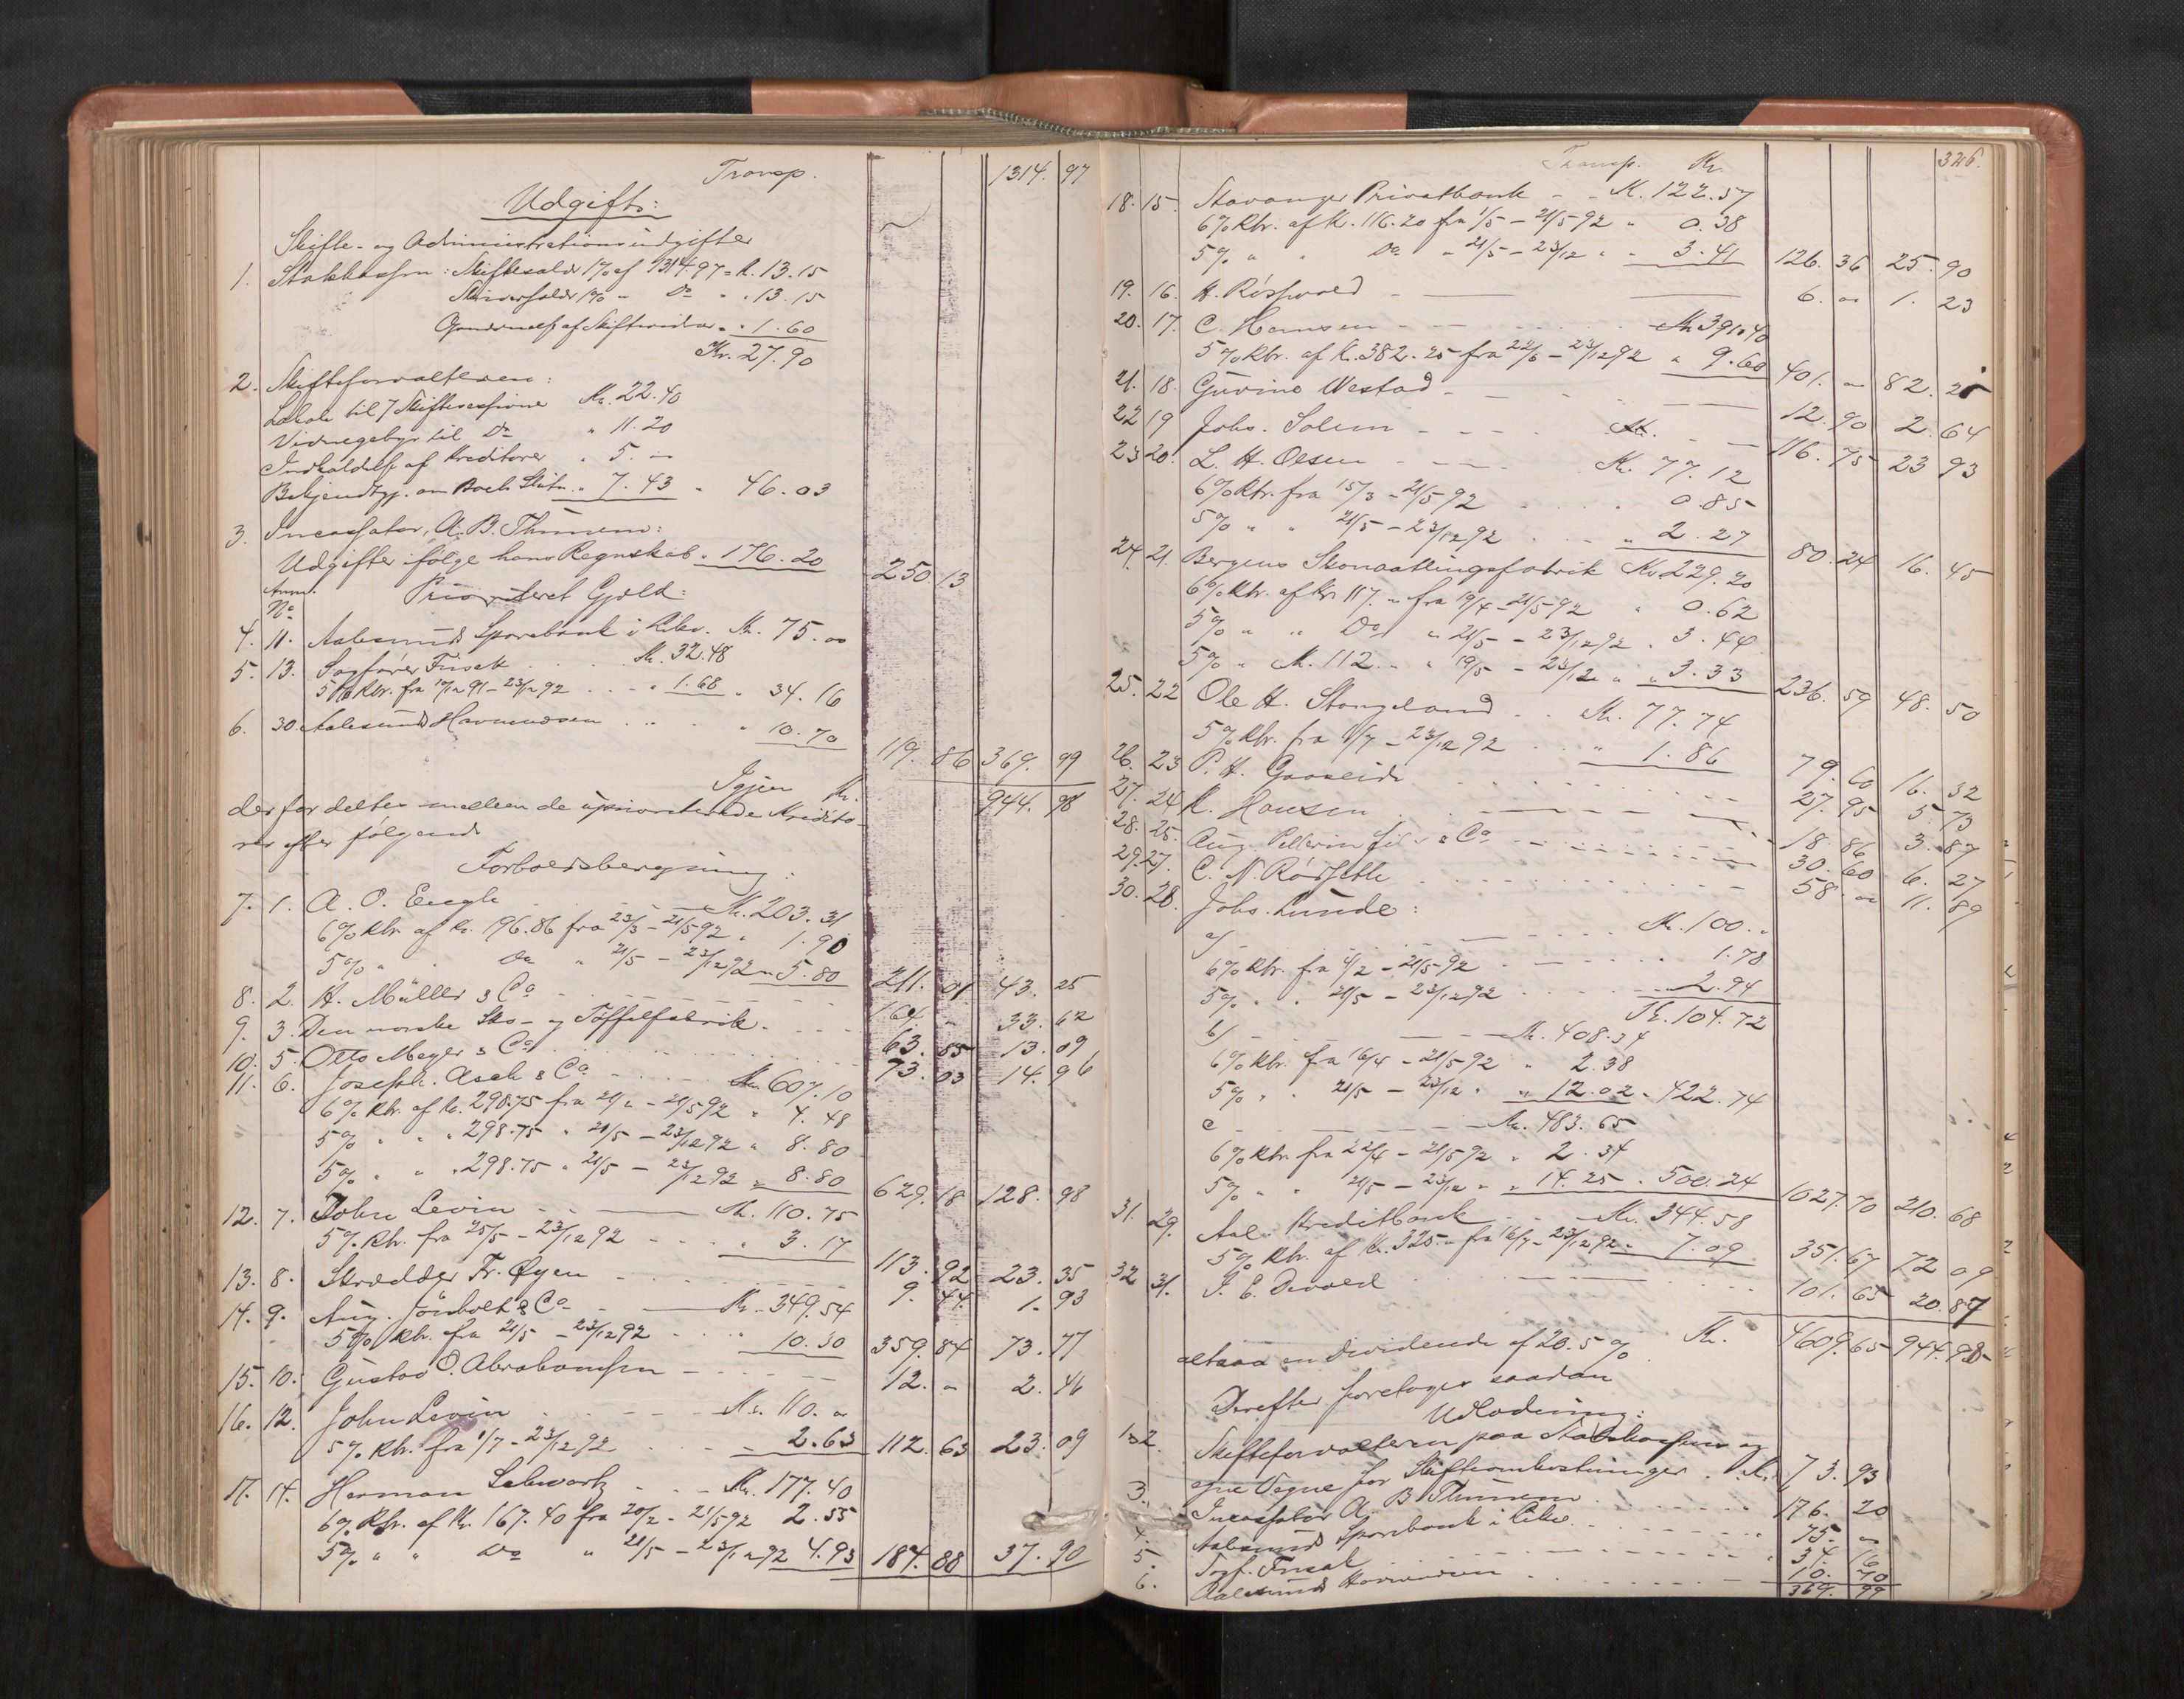 Transp. 1314. 97
Udgift:
Skifte- og Administrationsudgifter
1. Statskassen: Skiftesalær 1% af 1314.97 = K. 13.15
Skriversalær 1% - Do - " 13.15
Gjennemsf. af " 1.60
Kr. 27.90
2. Skifteforvalteren:
Lokale til 7 Skiftesessioner Kr. 22.40
Vidnegebyr til Do " 11.20
Indkaldelse af Kreditorer " 5. "
Bekjendtgj. om " 7.43 " 46.03
3. Incassator, A. B. Thinnem:
Udgifter ifølge hans Regnskab " 176.20 250 13
Anm. No Prioriteret Gjæld:
4. 11. Aalesunds Sparebank i Likv. Kr. 75. "
5. 13. Sagfører Frisak Kr. 32.48
5% Rtr. fra 10/12 91 - 23/12 92 " 1.68 " 34.16
6. 30. Aalesunds Havnevæsen " 10.70
119. 86 369. 99
Igjen Kr. 944. 98
der fordeles mellem de uprioriterede Kredito-
rer efter følgende
Forholdsberegning:
7. 1. A. O. Kr. 203.31
6% Rtr. af Kr. 196.86 fra 23/3 - 21/5 92 " 1.90
5% " Do " 21/5 - 23/12 92 " 5.80 211. 01 43. 25
8. 2. H. Müller & Co 164 " 33. 62
9. 3. Den norske Sko- og Tøffelfabrik 63. 85 13. 09
10. 5. Otto Meyer & Co 73. 03 14. 96
11. 6. Joseph Asch & Co Kr. 607.10
6% Rtr. af Kr. 298.75 fra - 21/5 92 " 4.48
5% " " 298.75 " 21/5 - 23/12 92 " 8.80
5% " " 298.75 " 21/5 - 23/12 92 " 8.80 629. 18 128. 98
12. 7. John Levin Kr. 110.75
5% Rtr. fra 25/5 - 23/12 92 " 3.17 113. 92 23. 35
13. 8. Skrædder Fr. Øyen 9. 44 1. 93
14. 9. Aug. & Co Kr. 349.54
5% Rtr. fra 21/5 - 23/12 92 10.30 359. 84 73. 77
15. 10. Gustav O. Abrahamsen 12. " 2. 46
16. 12. John Levin Kr. 110. "
5% Rtr. fra 1/7 - 23/12 92 2.63 112. 63 23. 09
17. 14. Herman Schwartz Kr. 177.40
6% Rtr. af Kr. 167.40 fra 20/2 - 21/5 92 2.55
5% " " Do " 21/5 - 23/12 92 4.93 184. 88 37. 90
326.
Transp. Kr.
18. 15. Stavanger Privatbank - Kr. 122.57
6% Rtr. af Kr. 116.20 fra 1/5 - 21/5 92 " 0.38
5% " " Do " 21/5 - 23/12 " " 3.41 126. 36 25. 90
19. 16. H. 6. " 1. 23
20. 17. C. Hansen Kr. 391.40
5% Rtr. af K. 382.25 fra 22/6 - 23/12 92 " 9.60 401. " 82. 21
21. 18. Gurine Westad 12. 90 2. 64
22 19 Johs. Solem Kr. 116. 75 23 93
23 20. L. H. Olsen Kr. 77.12
6% Rtr. fra 15/3 - 21/5 92 0.85
5% " " 21/5 - 23/12 92 " 2.27 80. 24 16. 45
24. 21. Bergens Kr. 229.20
6% Rtr. af Kr. 117. " fra 19/4 - 21/5 92 " 0.62
5% " " Do " 21/5 - 23/12 92 " 3.44
5% " Kr. 112. " " 19/5 - 23/12 " " 3.33 236. 59 48. 50
25. 22 Ole H. Stangeland Kr. 77.74
5% Rtr. fra 1/7 - 23/12 92 " 1.86 79. 60 16. 32
26. 23 P. H. Gaaseide 27. 95 5. 73
27. 24 K. Hansen 18. 86 3. 87
28. 25. Aug. Pellerin fils & Co 30. 60 6. 27
29. 27. C. N. Rødseth 58. " 11. 89
30. 28. Johs. Lunde:
a/ Kr. 100. "
6% Rtr. fra 4/2 - 21/5 92 1.78
5% " " 21/5 - 23/12 92 2.94
Kr. 104.72
b/ Kr. 408.34
6% Rtr. fra 16/4 - 21/5 92 " 2.38
5% " " 21/5 - 23/12 " " 12.02 " 422.74
c Kr. 483.65
6% Rtr. fra 22/4 - 21/5 92 " 2.34
5% " " 21/5 - 23/12 " " 14.25 " 500.24 1027. 70 210. 68
31. 29. Aal. Kreditbank Kr. 344.58
5% Rtr. af Kr. 325. " fra 16/7 - 23/12 92 " 7.09 351. 67 72 09
32 31. J. E. Devold 101. 65 20. 87
Kr. 4609. 65 944. 98
altsaa en Dividende af 20.5%
Derefter foretages saadan
Udlodning:
1 & 2. Skifteforvalteren paa Statskassens og
egne Vegne for Skifteomkostninger Kr. 73. 93
3. Incassator A. B. Thinnem 176. 20
4. Aalesunds Sparebank i Likv. 75. "
5. Sagf. Frisak 34. 16
6. Aalesunds Havnevæsen 10. 70
369. 99